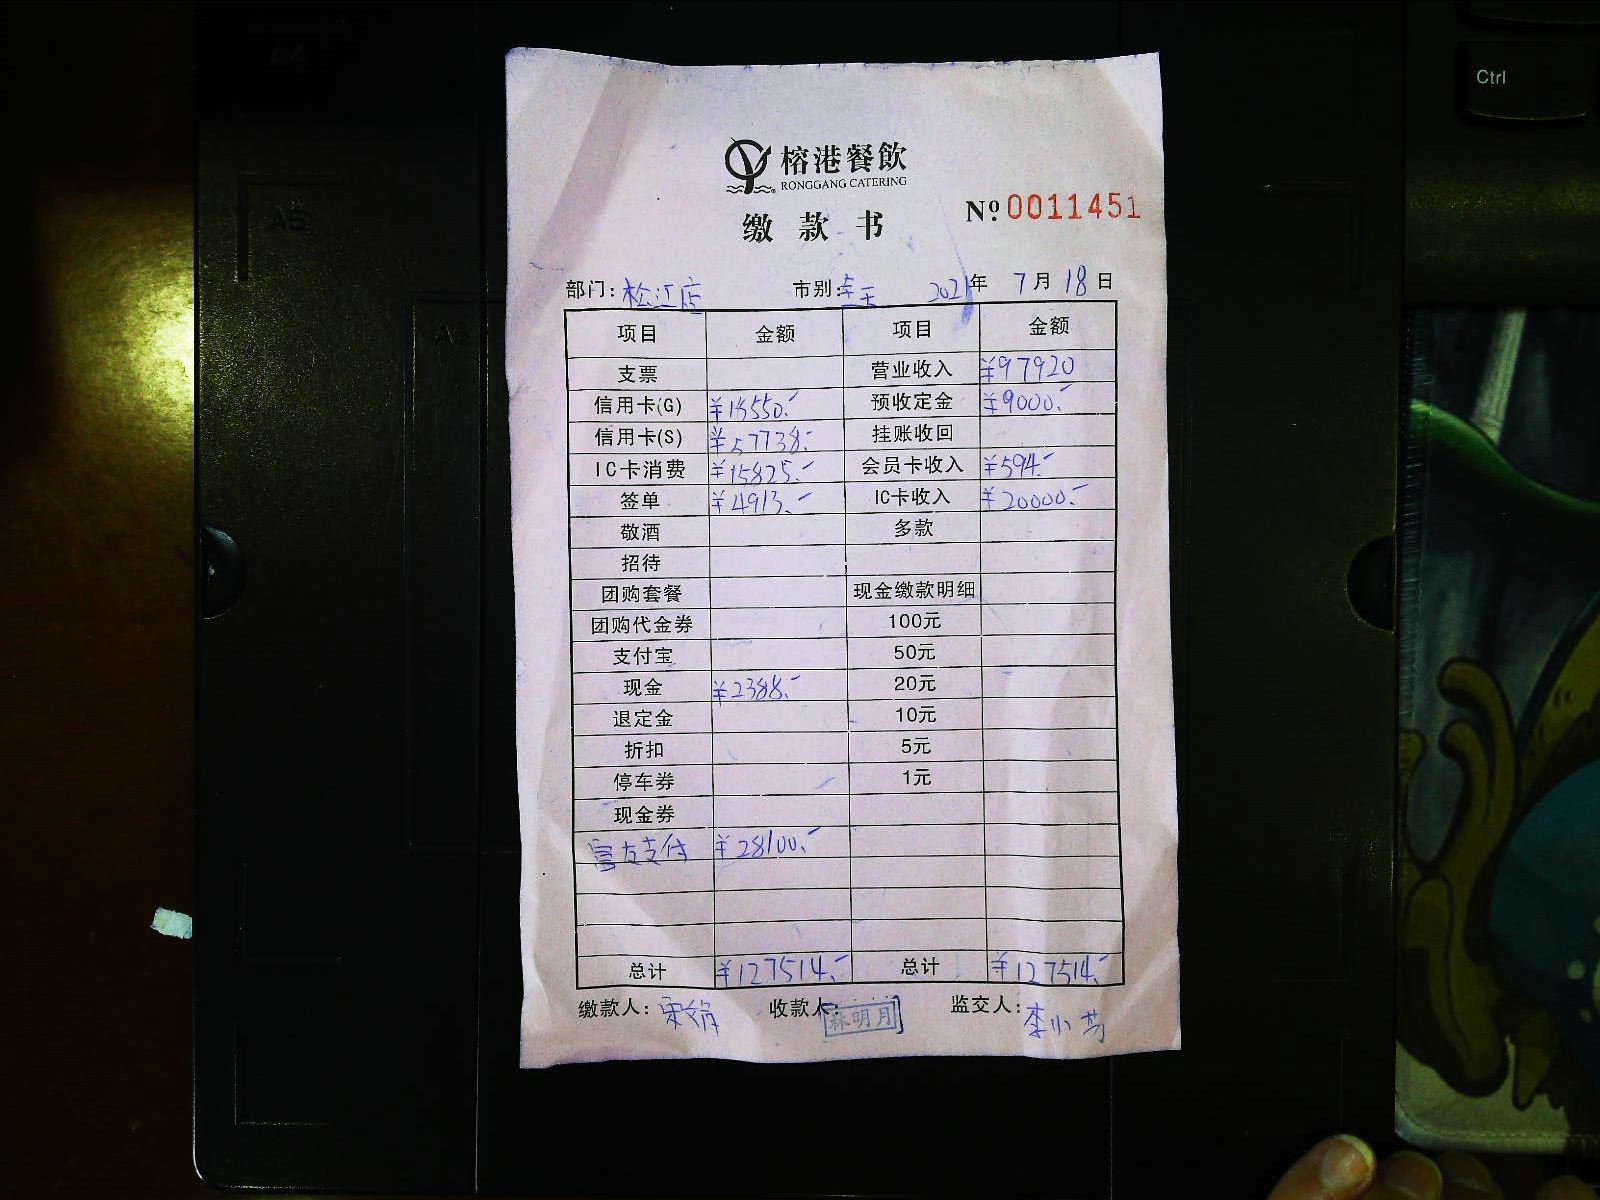 Ctrl
A5
A3
榕港餐飲
RONGGANG CATERING
缴款书
Nº.0011451
部门:松江店 市别:全天 2021年 7月18日
项目 金额 项目 金额
支票 营业收入 ¥97920
信用卡(G) ¥18550.- 预收定金 ¥9000.-
信用卡(S) ¥57738.- 挂账收回
IC卡消费 ¥15825.- 会员卡收入 ¥594.-
签单 ¥4913.- IC卡收入 ¥20000.-
敬酒 多款
招待
团购套餐 现金缴款明细
团购代金券 100元
支付宝 50元
现金 ¥2388.- 20元
退定金 10元
折扣 5元
停车券 1元
现金券
富友支付 ¥28100.-
总计 ¥127514.- 总计 ¥127514.-
缴款人: 收款人: 明月 监交人:李小芳